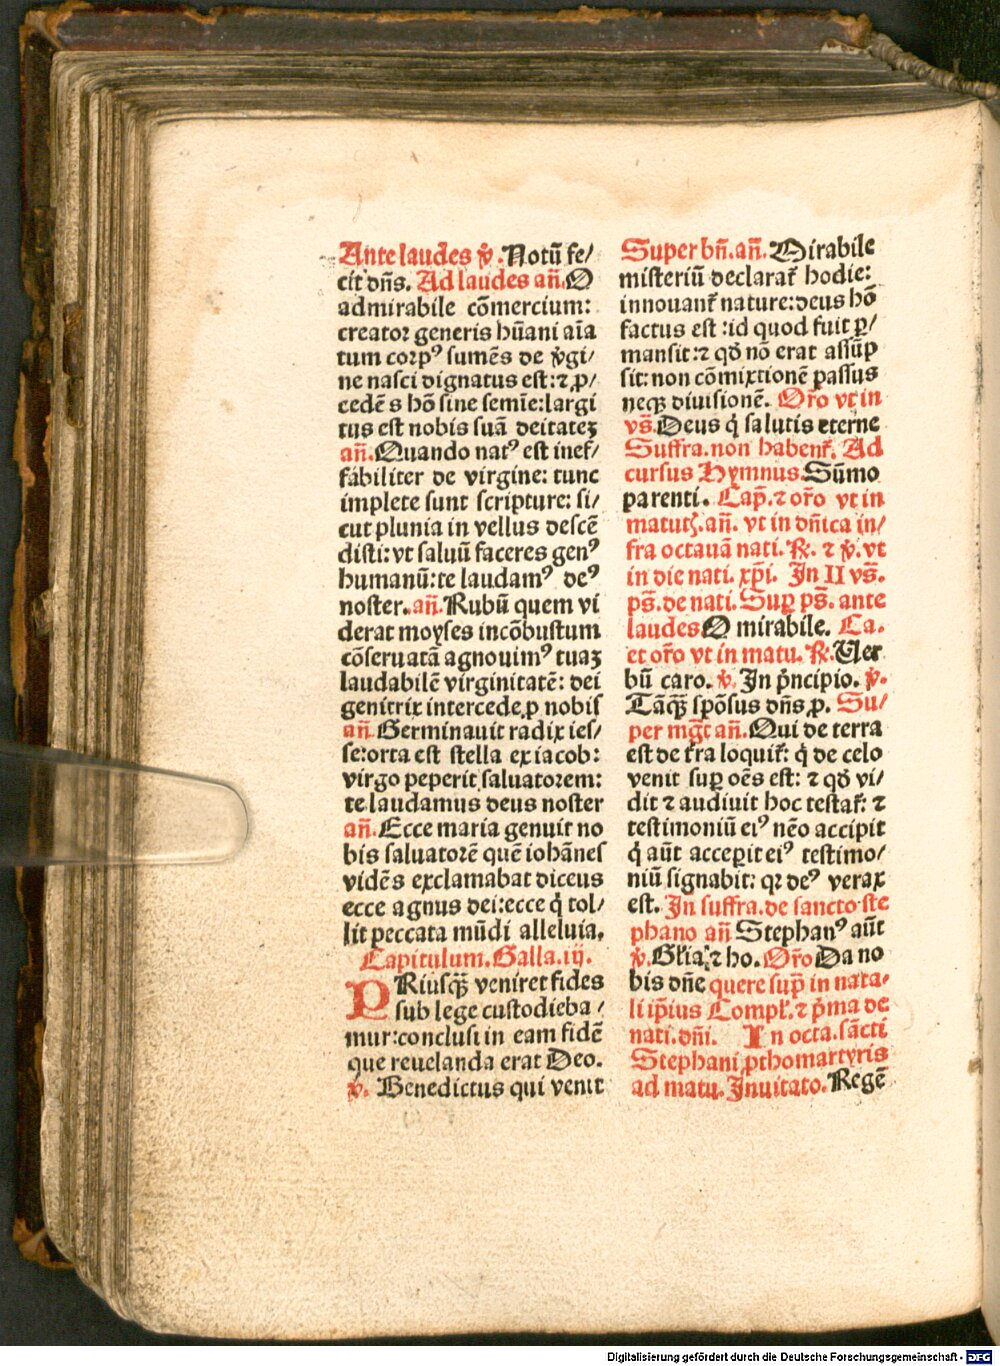 Ante laudes v̾. Notū fe/
cit dn̄s. Ad laudes an̄. O
admirabile cōmercium:
creator generis hūani aīa
tum corpꝰ sumēs de v̾gi/
ne nasci dignatus est: ⁊ ꝓ/
cedēs hō sine semīe: largi
tus est nobis suā deitateꝫ
an̄. Quando natꝰ est inef/
fabiliter de virgine: tunc
implete sunt scripture: si/
cut pluuia in vellus descē
disti: vt saluū faceres genꝰ
humanū: te laudamꝰ deꝰ
noster. an̄. Rubū quem vi
derat moyses incōbustum
cōseruatā agnouimꝰ tuaꝫ
laudabilē virginitatē: dei
genitrix intercede ꝓ nobis
an̄. Germinauit radix ies/
se: orta est stella ex iacob:
virgo peperit saluatorem:
te laudamus deus noster
an̄. Ecce maria genuit no
bis saluatorē quē iohānes
vidēs exclamabat diceus
ecce agnus dei: ecce q̄ tol/
lit peccata mūdi alleluia.
Capitulum. Galla. iij.
PRiusqꝫ̄ veniret fides
sub lege custodieba/
mur: conclusi in eam fidē
que reuelanda erat Deo.
v̾. Benedictus qui venit
Super bn̄. an̄. Mirabile
misteriū declarat̄ hodie:
innouant̄ nature: deus hō
factus est: id quod fuit ꝑ/
mansit: ⁊ qd̄ nō erat assūp
sit: non cōmixtionē passus
neqꝫ diuisionē. Or̄o vt in
vs̄. Deus q̄ salutis eterne
Suffra. non habent̄. Ad
cursus Hymnus. Sūmo
parenti. Cap̄. ⁊ or̄o vt in
matut̄. an̄. vt in dn̄ica in/
fra octauā nati. ℟. ⁊ v̾. vt
in die nati. xp̄i. In II vs̄.
ps̄. de nati. Suꝑ ps̄. ante
laudes O mirabile. Ca.
et or̄o vt in matu. ℟. Uer
bū caro. v̾. In p̄ncipio. v̾.
Tāqꝫ̄ spōsus dn̄s ꝓ. Su/
per mḡt an̄. Qui de terra
est de t̄ra loquit̄: q̄ de celo
venit suꝑ oēs est: ⁊ qd̄ vi/
dit ⁊ audiuit hoc testat̄: ⁊
testimoniū eiꝰ nēo accipit
q̄ aūt acceꝑit eiꝰ testimo/
niū signabit: qꝛ deꝰ verax
est. In suffra. de sancto ste
phano an̄ Stephanꝰ aūt
v̾. Gl̄ia ⁊ ho. Or̄o Da no
bis dn̄e quere sup̄ in nata-
li ip̄ius Compl̄. ⁊ p̄ma de
nati. dn̄i. In octa. sācti
Stephani ꝓthomartyris
ad matu. Inuitato. Regē
Digitalisierung gefördert durch die Deutsche Forschungsgemeinschaft - DFG